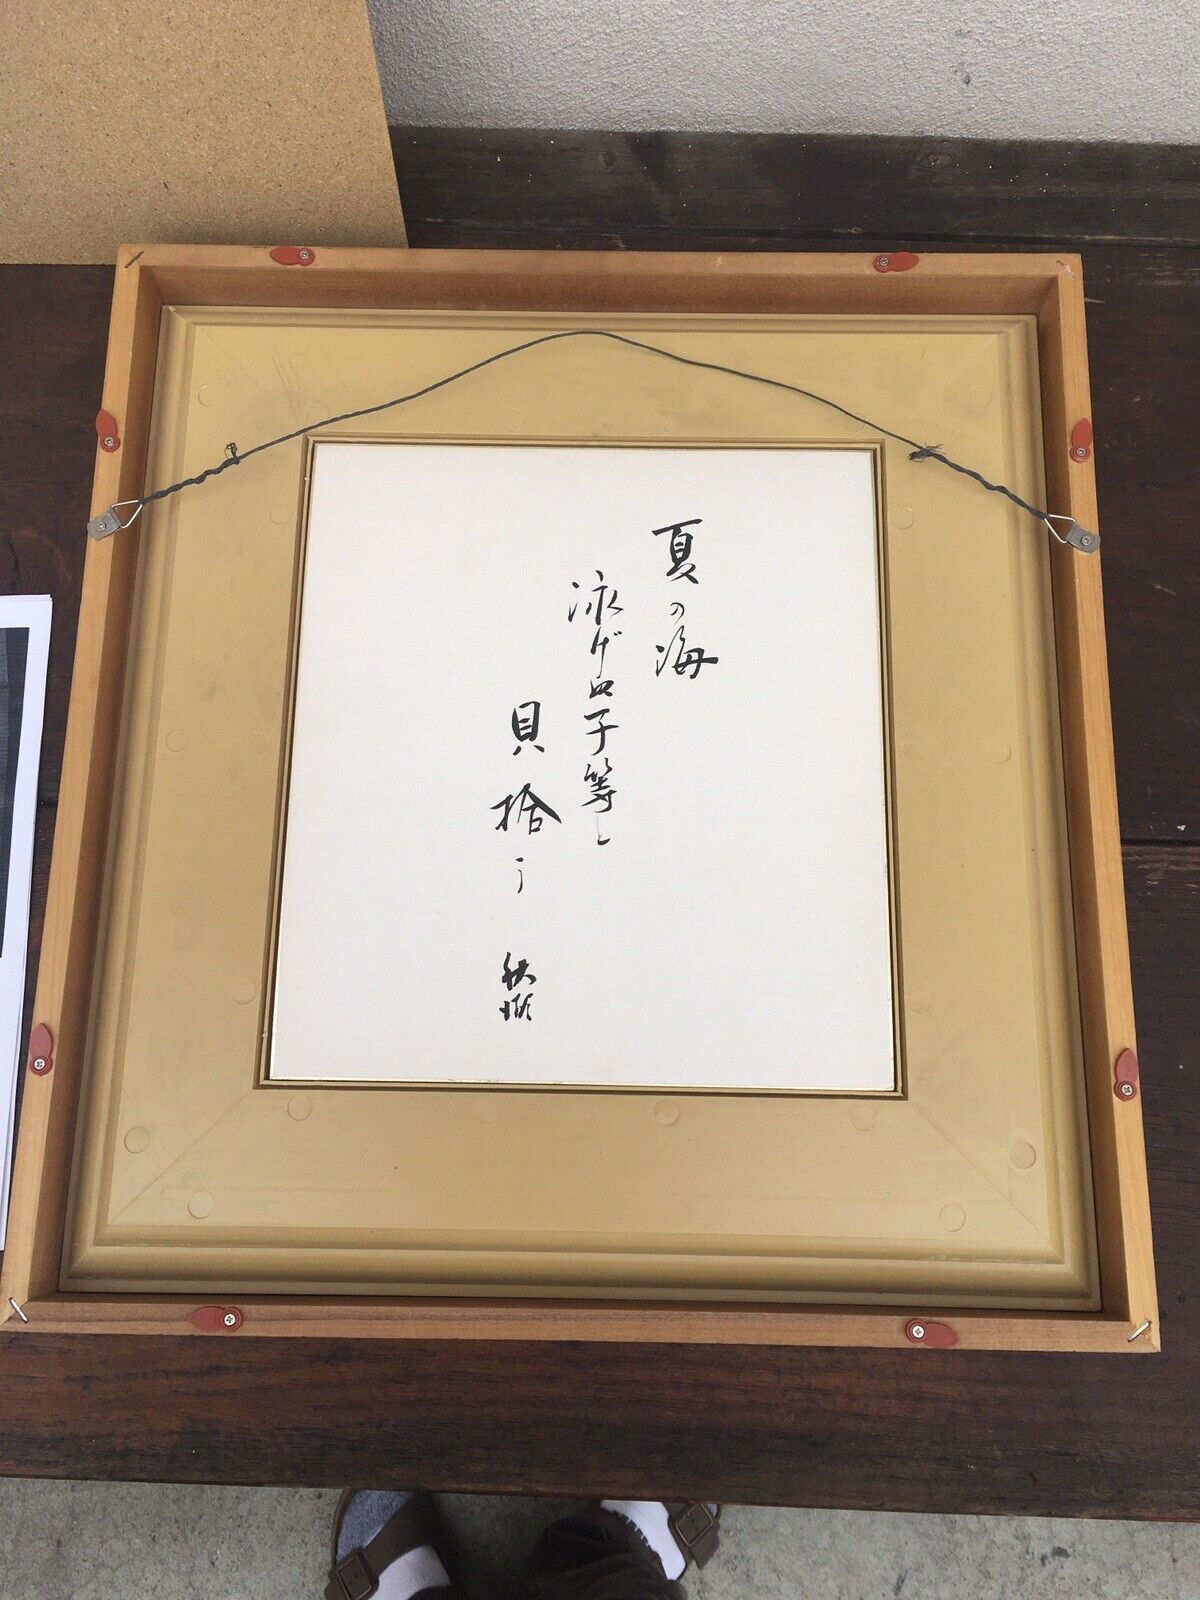 夏の海
泳げぬ子等と
貝拾う